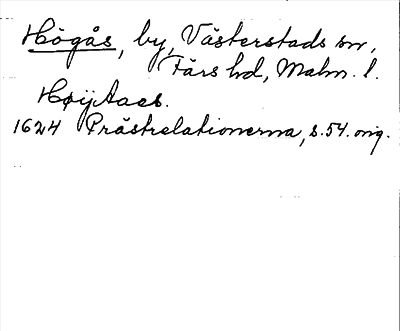 Högås, by, Västerstads sn,
Färs hd, Malm. l.
Høÿaas.
1624 Prästrelationerna, s. 54. orig.